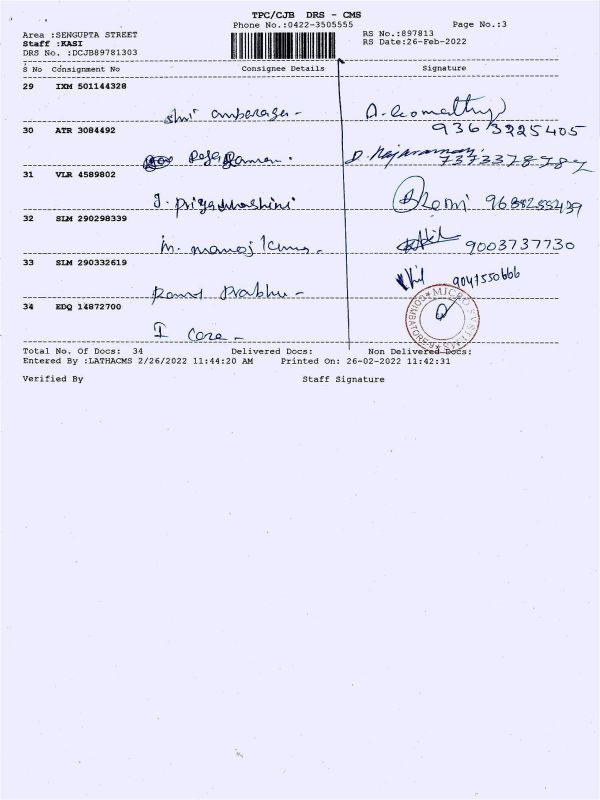 TPC/CJB DRS - CMS
Phone No.:0422-3505555
Page No.:3
Area :SENGUPTA STREET
RS No.:897813
Staff :KASI
RS Date:26-Feb-2022
DRS No. :DCJB89781303
S No Consignment No Consignee Details Signature
29 IXM 501144328
shri
9363225405
30 ATR 3084492
D. Rajaraman
31 VLR 4589802
J. Priyadharshini
32 SLM 290298339
m. manoj kumar - 9003737730
33 SLM 290332619
9047550666
Prabhu -
34 EDQ 14872700
I care -
COIMBATORE MICRO SYSTEMS
Total No. Of Docs: 34 Delivered Docs: Non Delivered Docs:
Entered By :LATHACMS 2/26/2022 11:44:20 AM Printed On: 26-02-2022 11:42:31
Verified By Staff Signature